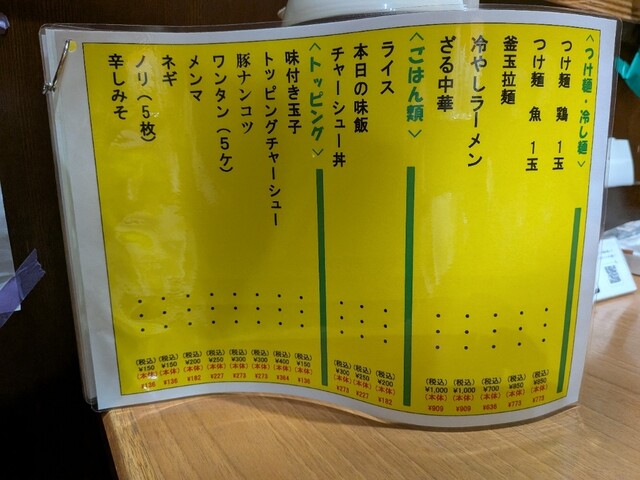 〈つけ麺・冷し麺〉
つけ麺 鶏 1玉 ・・・ (税込) ¥850 (本体) ¥773
つけ麺 魚 1玉 ・・・ (税込) ¥850 (本体) ¥773
釜玉拉麺 ・・・ (税込) ¥700 (本体) ¥636
冷やしラーメン ・・・ (税込) ¥1,000 (本体) ¥909
ざる中華 ・・・ (税込) ¥1,000 (本体) ¥909
〈ごはん類〉
ライス ・・・ (税込) ¥200 (本体) ¥182
本日の味飯 ・・・ (税込) ¥250 (本体) ¥227
チャーシュー丼 ・・・ (税込) ¥300 (本体) ¥273
〈トッピング〉
味付き玉子 ・・・ (税込) ¥150 (本体) ¥136
トッピングチャーシュー ・・・ (税込) ¥400 (本体) ¥364
豚ナンコツ ・・・ (税込) ¥300 (本体) ¥273
ワンタン(5ケ) ・・・ (税込) ¥300 (本体) ¥273
メンマ ・・・ (税込) ¥250 (本体) ¥227
ネギ ・・・ (税込) ¥200 (本体) ¥182
ノリ(5枚) ・・・ (税込) ¥150 (本体) ¥136
辛しみそ ・・・ (税込) ¥150 (本体) ¥136